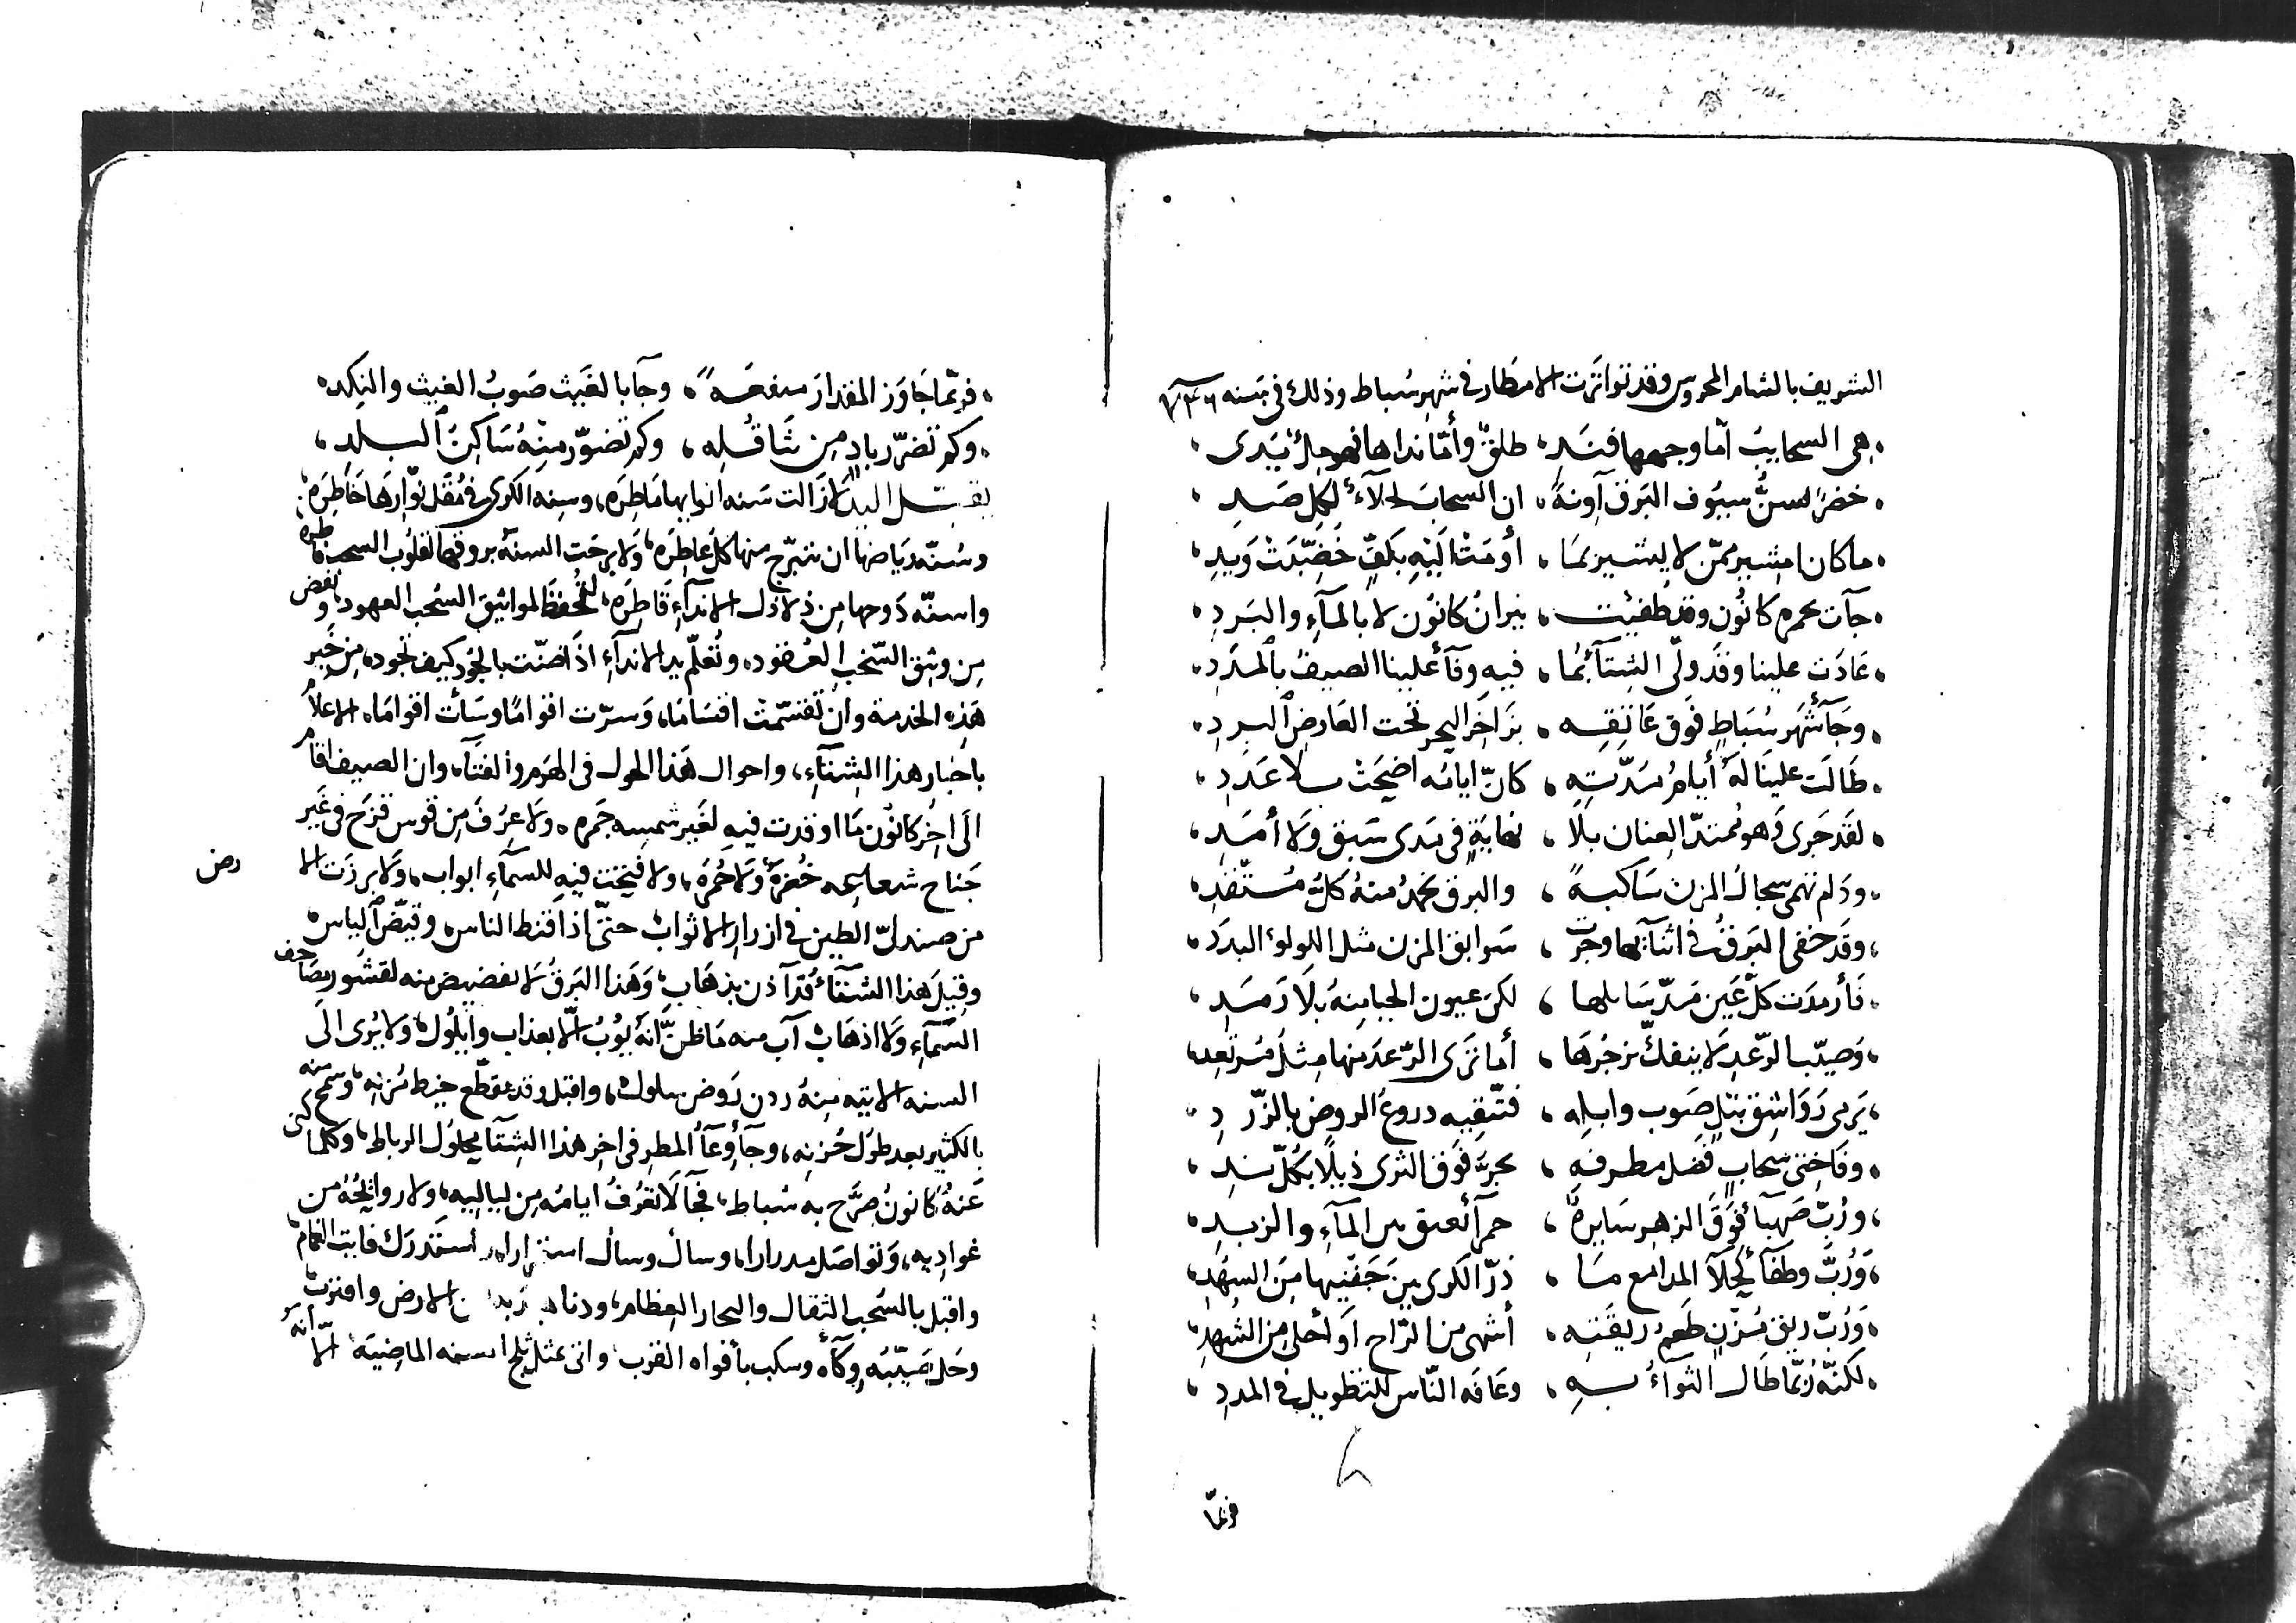 الشريف بالشام المحروس وقد تواترت الامطار في شهر شباط وذلك في سنه ٧٣٦
هى السحايبُ أمّا وجهها فنَدٍ، طلقٌ وأمّا نداها فهو جلّ يَدى
خضرًا لسنّ سيُوف البَرق آونةً، ان السحابَ لجلآءٌ لكل صَدِ
ما كان امشير ممّن لا يشير بمَا، أومَت اليَهِ بكفٍّ خَضّبَت وَيدِ
جآت بحمرة كانُون وقد طفيَت، نيرانُ كانُون لا بالمآءِ والبَردِ
عَادَت علينا وقد ولّى الشتآءُ بمُا، فيهِ وفآءَ علينا الصيفُ بالمدَدِ
وجَآء شهر سُبَاطٍ فوق عَاتِقِه، بزَاخِر البحر تحت العَارضِ البردِ
طَالَت علينَا لهُ أيامُ مدّتِهِ، كانّ ايامَه اضحَت بلا عَدَدِ
لقد جَرى وَهو مُمتدّ العِنان بلا، نهايَةٍ في مَدى سَبق ولا أمَدِ
ودَام تهمى سجالُ المزن سَاكبةً، والبرق يخمدُ منهُ كلُّ مُتّقدِ
وقد خفى البَرقُ في اثنآئها وجرَت، سَوابق المزن مثل اللولوء البدَد
فأرمدَت كلّ عَين مَدّ سَايلها، لكن عيون الحيا منهُ بلا رَمَدِ
وَصَيّب الرّعدِ لا ينفكّ يزجُرهَا، أما ترَى الرّعدَ منها مثلَ مُرتَعِد
يَرمى رَوَاشق نبلٍ صَوب وابلهِ، فتّقيه دروعُ الروض بالزّردِ
وفَاختى سحابٍ فضل مطرفهِ، يجرّ فَوق الثرى ذيلًا بكُلّ نَدِ
ورُبّ صَهبآءَ فوقَ الزهر سَايرةٌ، حمرآءُ تعبق بين المآءِ والزبدِ
وَرُبَّ وطفآءَ كحلآءَ المدامع مَا، ذرّ الكرى بينَ جَفنيها مِن السهدِ
وَرُبّ ريق مُزنٍ طَعمُ ريقَتِه، أشهى من الرّاح أو أحلى من الشُهدِ
لكنّه رُبمّا طَال الثوآءُ بهِ، وعَافه النّاس للتطويل في المددِ
فربّما
فربّما جَاوَز المقدارَ منفعةً، وجآء بالغَيث صَوبُ الغيث والنكد
وكم تضرّر بادٍ من تثَاقُله، وكم تضوّر منهُ سَاكنُ البلدِ
يقبّل اليد لا زالت سَنه انوايها مَاطِرَه، وسِنه الكرى في مُقَل نوّارهَا خَاطِرَه
وسُنّه ريَاضها ان تتبرّج منها كلّ عَاطرَه، وَلا برحَت السنة بروقها لقلُوب السحب فاطره
واسنّه دَوحها من ذلاذل الاندآءِ قَاطِرَه، لتُحفظَ المواثيق السُحب العهود، وتفض
من وثيق السّحُب العُقُود، وتُعلّم يد الاندآءِ اذا ضنّت بالجُود كيف تجُود، من خَبر
هَذِه الخدمة وان تقسّمت اقسَامَا، وَسرّت اقوامًا وسَأت اقوامَا، الاعلامُ
باخبار هذا الشِتآءِ، واحوال هَذا الحول في الهَرم والفتآء، وان الصيف اقام
الَى اخر كانُون مَا اوقدت فيهِ لغَير شمسِه جَمره، ولا عُرِفَ مِن قَوس قزَح في غَير
جَناح شعاعِه خُضرَةٌ وَلا حُمرَة، ولا فُتحَت فيه للسَمآءِ ابواب، وَلا برزَت الارض
من صندل الطين في ازرار الاثواب، حتّى اذا قنط الناس، وقبّض الياس
وقيلَ هذا الشتآءُ قد آذن بذهَاب، وَهَذا البَرقُ لا يفضيض منه لقشور مصَاحف
السّمآءِ وَلا اذهَاب، آب منه مَا ظنّ انّهُ يوُوبُ الّا بعذاب وايلُول، ولا يُرى الَى
السنه الاتيه منهُ ردن رَوض مبلول، واقبل وقد تقطّع خيط مُزنِه، وسمح منه
بالكثير بعد طول حُزنه، وجآء وعآءُ المطر في اخر هذا الشتآ محلولُ الرباط، وكلما كنى
عَنهُ كانونُ صَرَّح به سُباط، فجآ لا تعرفُ ايامُه مِن لياليه، ولا روايحُهُ من
غواديه، وَتواصَل مدرارا، وسأل وسأل استمرارا، واستَدرَك فايت الغمام
واقبل بالسُحب الثقال والبحار العظام، ودنا الارض وافترت
وحَل صَيّبُه وِكآءَه، وسكب بأفواه القرب، واتى بمثل ثلج السنه الماضيَة، الّا انه